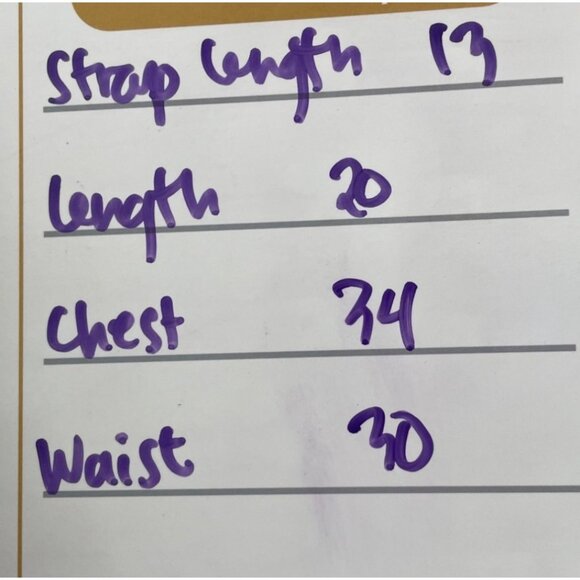 Strap length 13
length 20
Chest 34
Waist 30